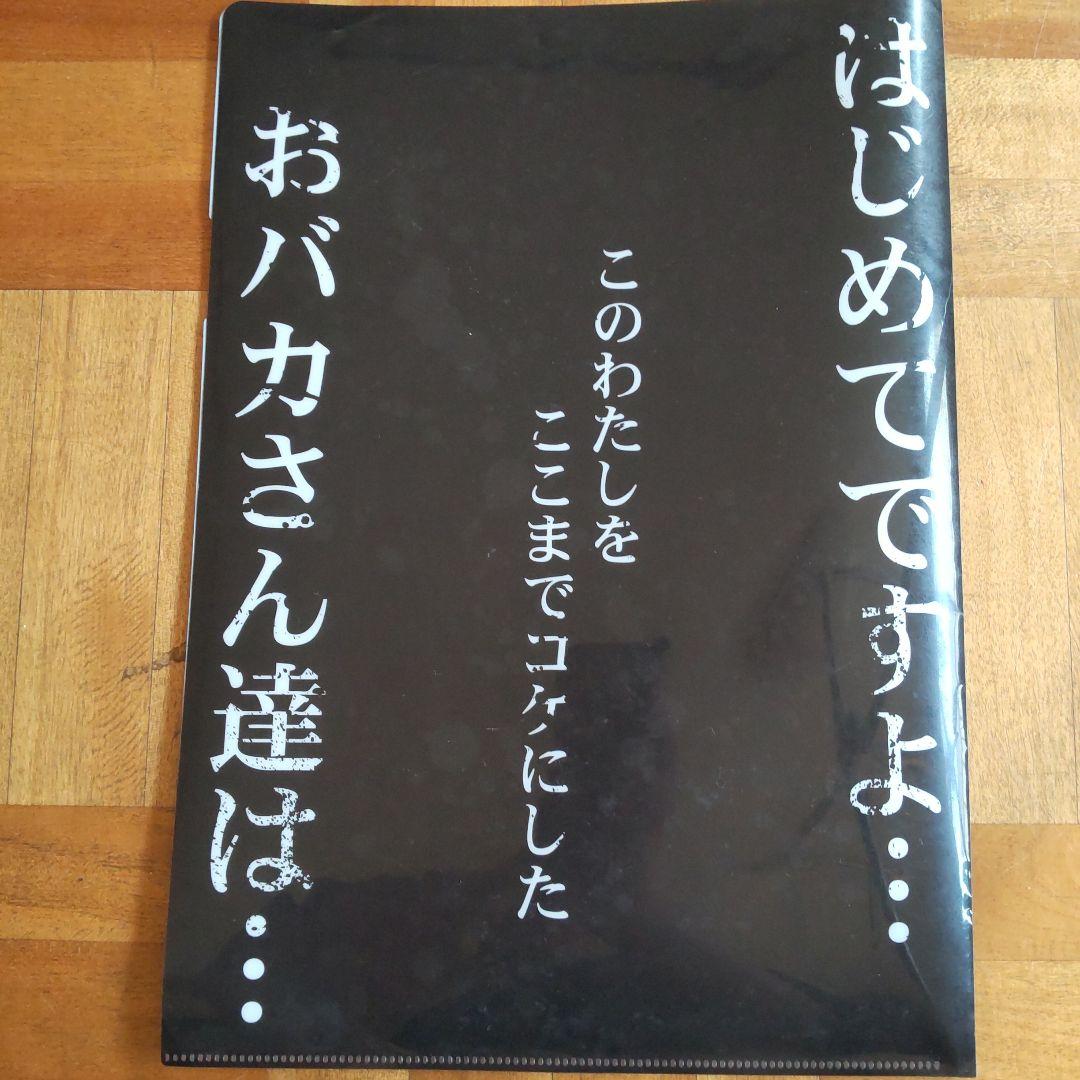 はじめてですよ…
このわたしを
ここまでコケにした
おバカさん達は…